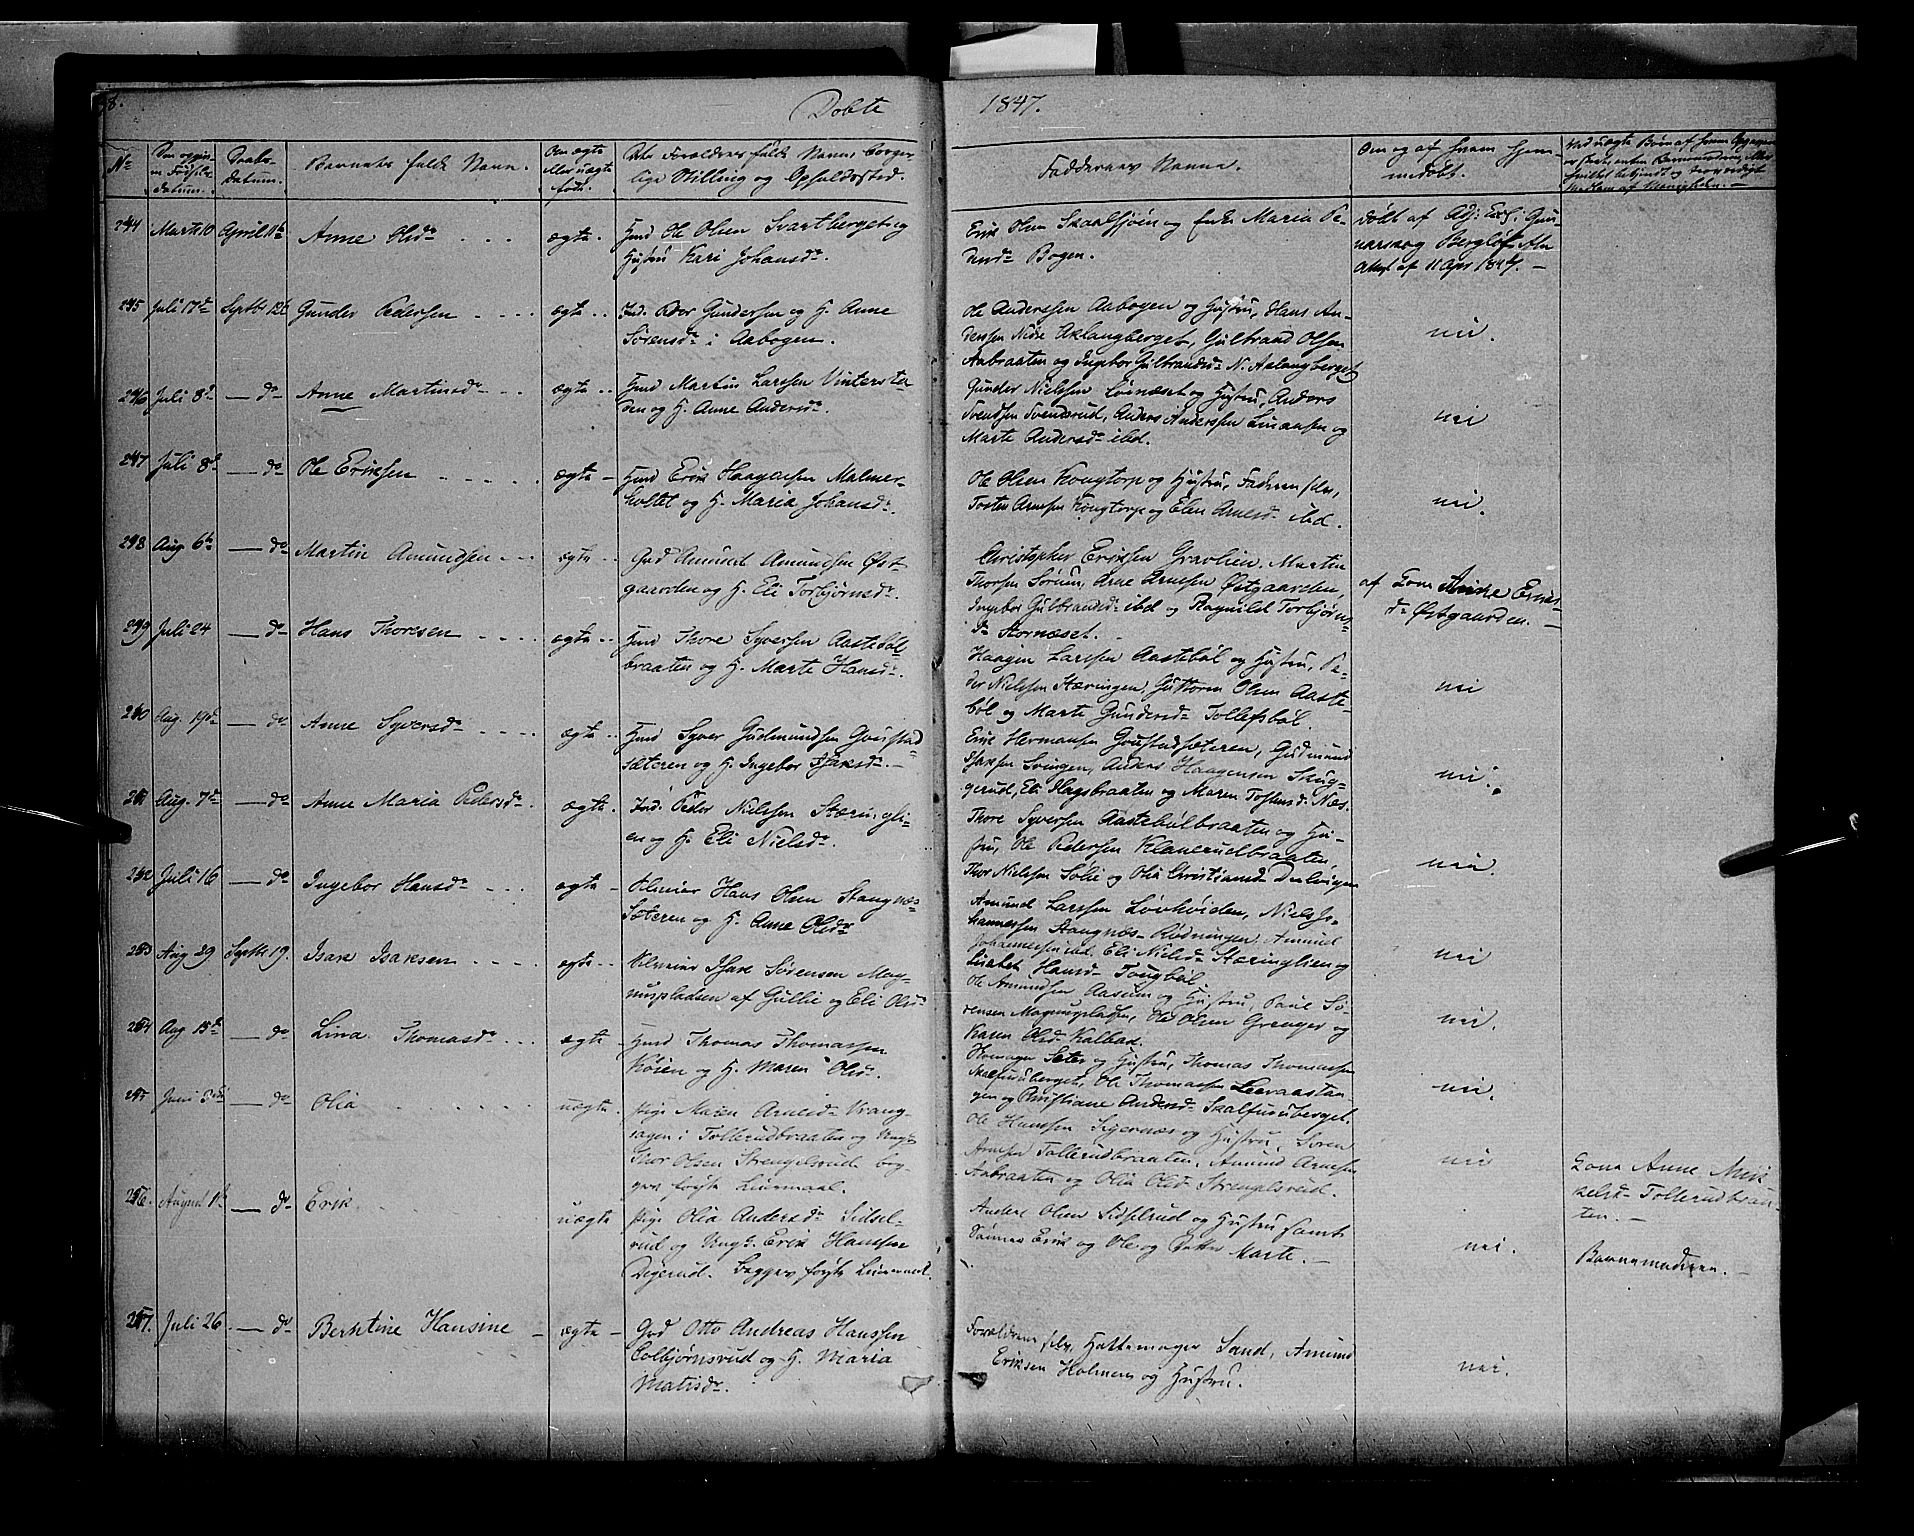 8.
Døbte
1847.
No
Den opgiv-
ne Fødsels-
datum.
Daabs-
datum.
Barnets fulde Navn.
Om ægte
eller uægte
født.
De Forældres fulde Navne, borger-
lige Stilling og Opholdssted.
Faddernes Navne.
Om og af hvem hjem-
medøbt.
244 Marts 10 April 11te Anne Olsdr ægte.
Hmd Ole Olsen Svartberget og
Hustru Kari Johansdr
Erik Olsen Skaalsjøen og Enke Maria Pe-
dersdr Bogen.
døbt af Adj:
Attest af 11 Apr 1847. —
245 Juli 17de Septbr 12te Gunder Pedersen ægte
Ind. Peder Gundersen og H. Anne
Sørensdr i Aabogen.
Ole Anderssen Aabogen og Hustru, Hans An-
derssen Nedre Aklangberget, Gulbrand Olsen
Aabraaten og Ingebor Gulbrandsdr N. Aklangberget
nei.
246 Juli 8de — do Anne Martinsdr ægte
Hmd Martin Larssen Vinterste-
den og H. Anne Andersdr.
Gunder Nielssen Løvnæset og Hustru, Anders
Svendsen Svendsrud, Anders Anderssen Linaasen og
Marte Andersdr ibd.
nei
247 Juli 8de — do Ole Eriksen ægte —
Hmd Erik Haagensen Malmer-
holtet og H. Maria Johansdr.
Ole Olsen Kongtorp og Hustru, Faderen selv,
Tosten Arnesen Kongtorp og Elen Arnesdr ibd.
nei.
248 Aug 6te — do Martin Amundsen ægte
Grd Amund Amundsen Øst-
gaarden og H. Eli Torbjørnsdr.
Christopher Eriksen Gravlien, Martin
Thorsen Sørum, Arne Arnesen Østgaarden,
Ingebor Gulbrandsdr ibd og Ragnild Torbjørns-
dr Stornæset.
af Kone Anne Eriks-
dr Østgaarden. —
249 Juli 24 — do Hans Thoresen ægte
Hmd Thore Syversen Aastebøl-
braaten og H. Marte Hansdr.
Haagen Larssen Aastebøl og Hustru, Pe-
der Nielssen Stæringen, Guttorm Olsen Aaste-
bøl og Marte Gundersdr Tollefsbøl
nei
250 Aug. 19de — do Anne Syversdr ægte
Hmd Syver Gudmundsen Goustad-
sæteren og H. Ingebor Isaksdr. —
Erik Hermansen Goustadsæteren, Gudmund
Isaksen Svingen, Anders Haagensen Skug-
gerud, Eli Hagsbraaten og Maren Tostensdr Næs.
nei.
251 Aug. 7de — do Anne Maria Pedersdr ægte
Ind. Peder Nielssen Stæringli-
en og H. Eli Nielsdr.
Thore Syversen Aastebølbraaten og Hu-
stru, Ole Pedersen Klanerudbraaten,
Thor Nielssen Sølie og Olia Christiansdr Dalvigen
nei.
252 Juli 16 — do Ingebor Hansdr ægte
Hans Olsen Stangnæs-
Sæteren og H. Anne Olsdr
Amund Larssen Løvhøiden, Niels Jo-
hannessen Stangnæs-Rødningen, Amund
Johannessen ibd, Eli Nielsdr Stæringlien og
Lisabet Hansdr Tougbøl.
nei
253 Aug 29 Septbr 19. Isak Isaksen ægte
Isak Sørensen Mag-
nuspladsen af Gullie og Eli Olsdr
Ole Amundsen Aasum og Hustru, Poul Sø-
rensen Magnuspladsen, Ole Olsen Grenger og
Karen Olsdr Kalbak.
nei.
254 Aug 15de — do Lina Thomasdr ægte
Hmd Thomas Thomassen
Køien og H. Maren Olsdr.
Seter og Hustru, Thomas Thomassen
Skalfuruberget, Ole Thomassen Leeraastan-
gen og Christiane Andersdr Skalfuruberget.
nei.
255 Juni 3die — do Olia uægte.
Pige Maren Arnesdr Vrang-
sagen i Tollerudbraaten og Ungk
Thor Olsen Strengelsrud beg-
ges første Leiermaal.
Ole Hanssen Sigernæs og Hustru, Søren
Arnesen Tollerudbraaten, Amund Arnesen
Aabraaten og Olia Olsdr Strengelsrud.
nei
Kone Anne Mik-
kelsdr Tollerudbraa-
ten. —
256. August 1ste — do Erik uægte
Pige Olia Andersdr Sidsel-
rud og Ungk. Erik Hanssen
Digerud. Begges første Leiermaal.
Anders Olsen Sidselrud og Hustru samt
Sønner Erik og Ole og Datter Marte. —
nei.
Barnemoderen. —
257. Juli 26. — do Berntine Hansine — ægte —
Grd Otto Andreas Hanssen
Colbjørnsrud og H. Maria
Matisdr.
Forældrene selv, Hattemager Sand, Amund
Eriksen Holmen og Hustru.
nei.